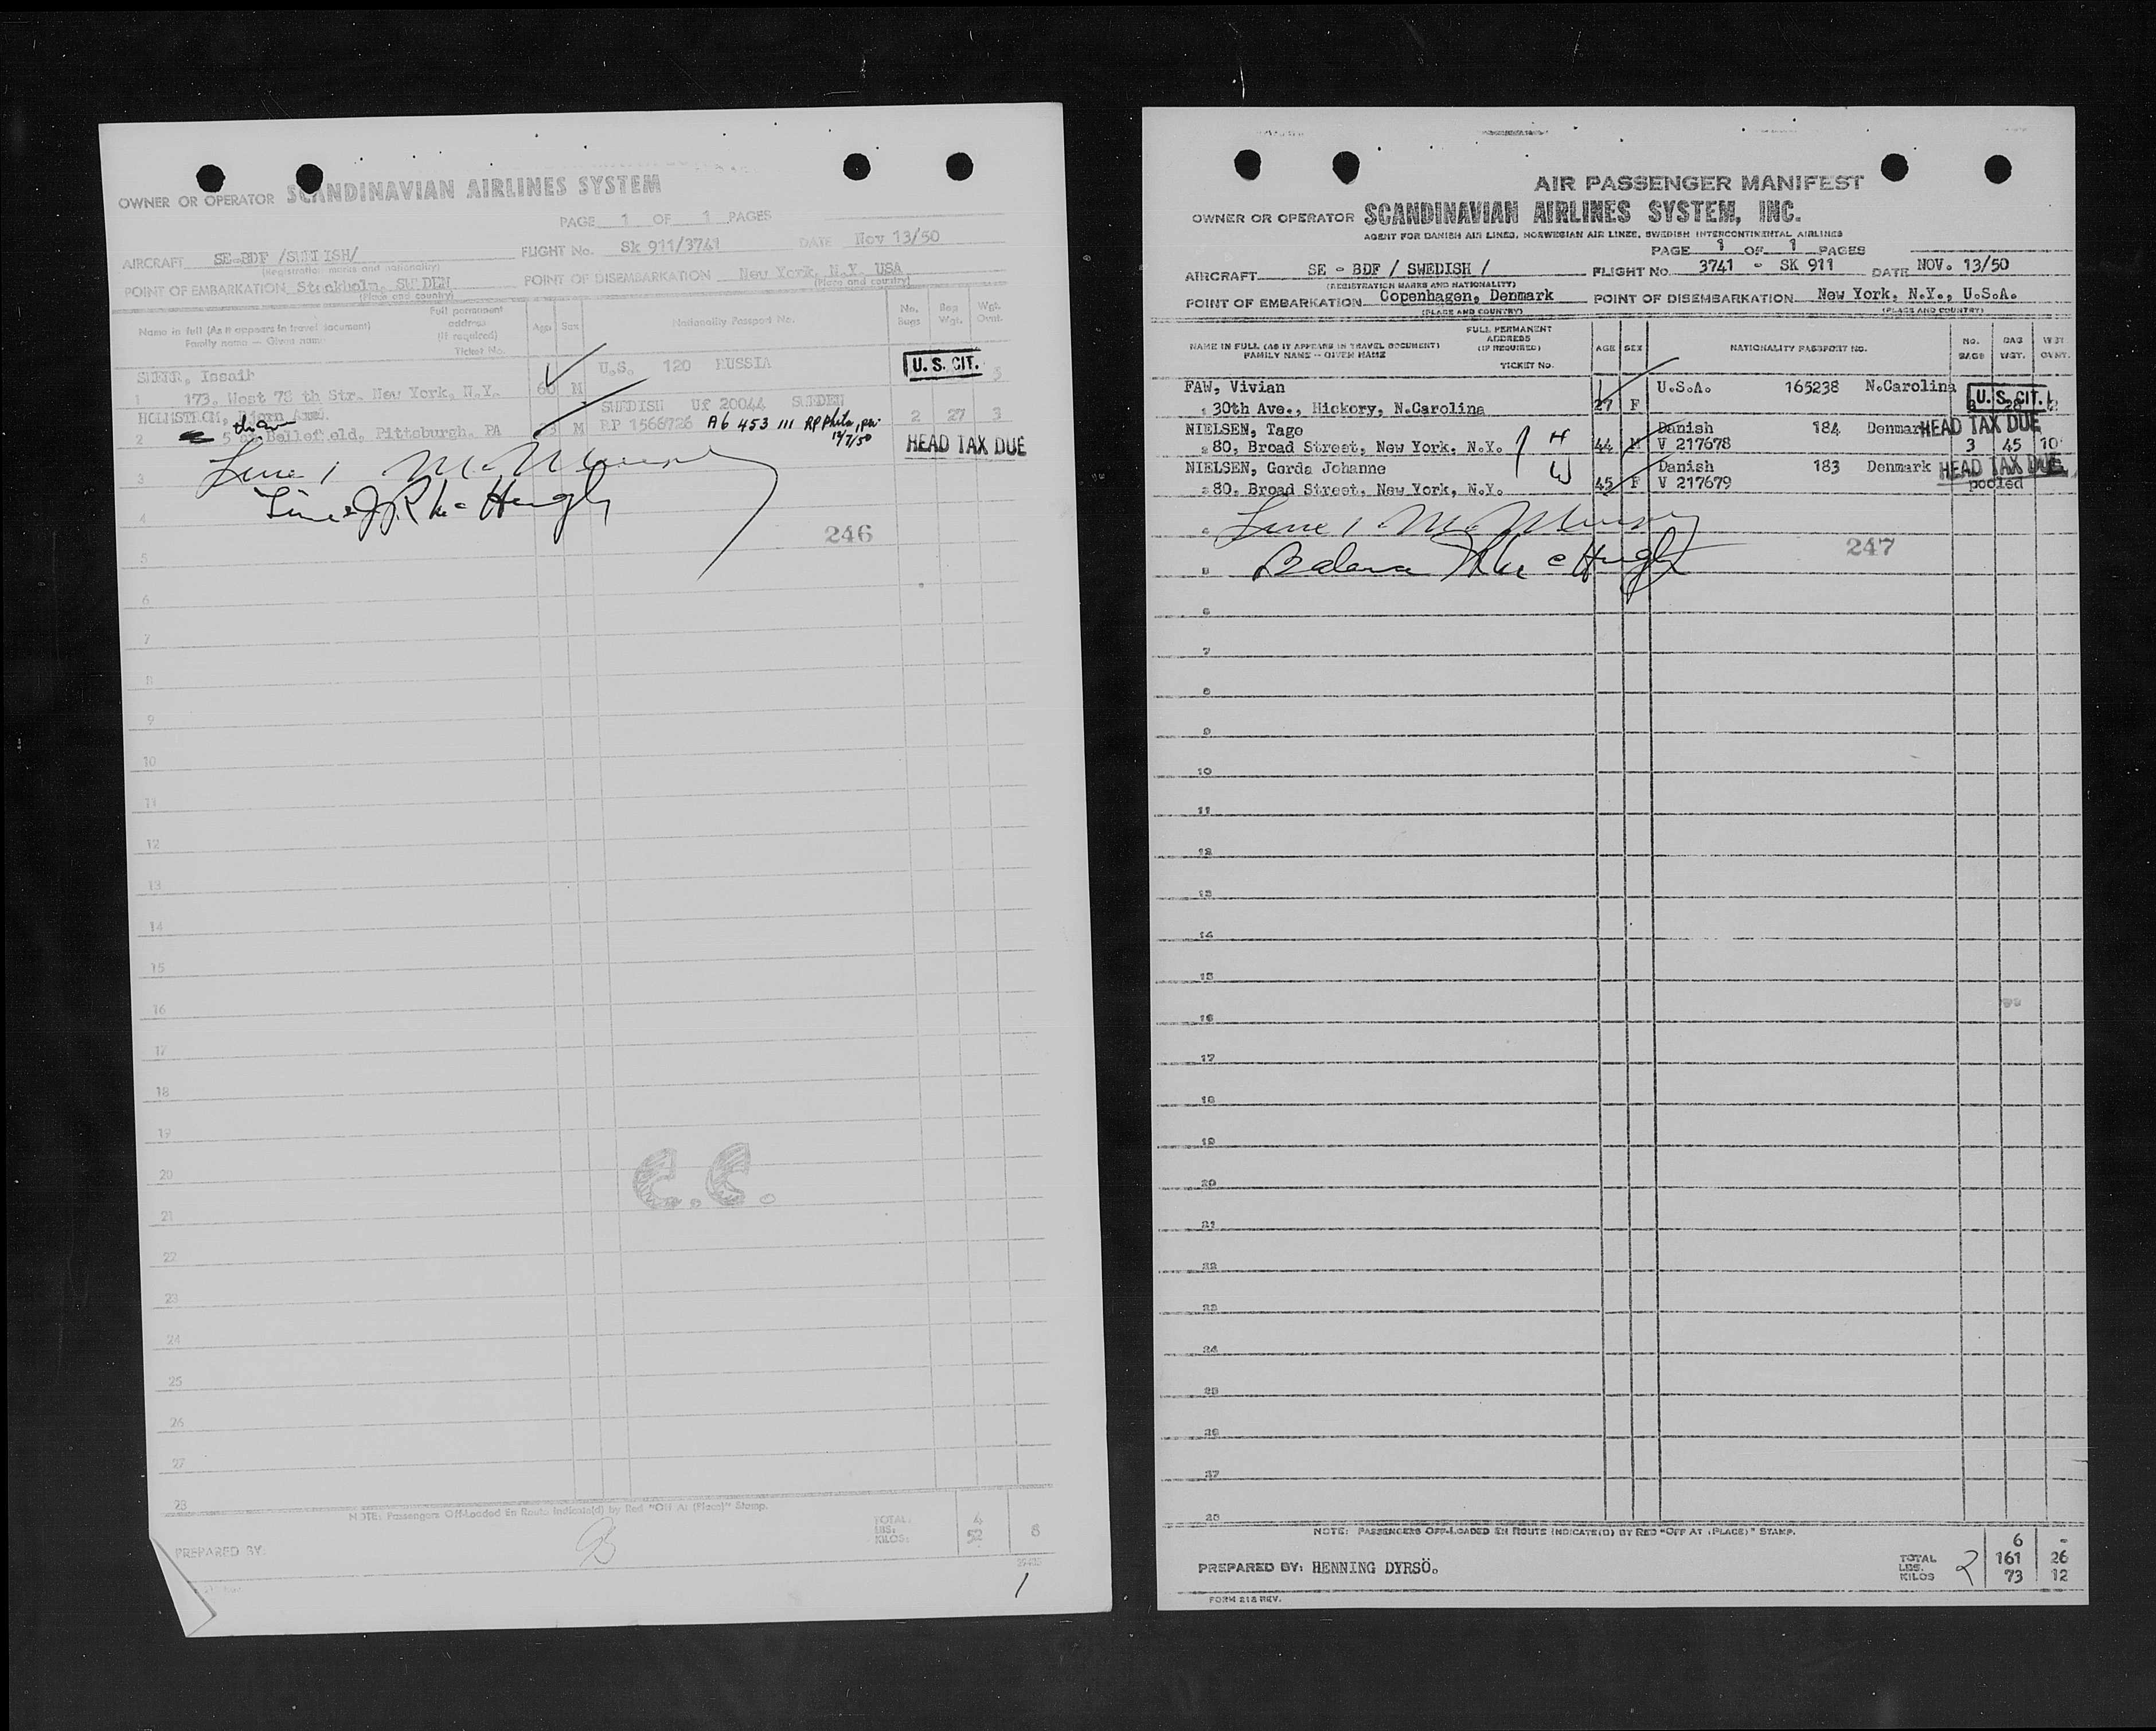 OWNER OR OPERATOR SCANDINAVIAN AIRLINES SYSTEM
PAGE 1 OF 1 PAGES
AIRCRAFT SE-BDF /SWEDISH/ FLIGHT No. Sk 911/3741 DATE Nov 13/50
(Registration marks and nationality)
POINT OF EMBARKATION Stockholm, SWEDEN POINT OF DISEMBARKATION New York, N.Y. USA
(Place and country) (Place and country)
Name in full (As it appears in travel document) Full permanent address (If required) Age Sex Nationality Passport No. No. Bags Bag Wgt. Wgt. Ovnt.
Family name — Given name
Ticket No.
U.S. 120 RUSSIA U.S. CIT. 5
1 173, West 78 th Str. New York, N.Y. 60 M
HOLMSTROM, Bjorn Axel SWEDISH Uf 20044 SWEDEN
2 Bellefield, Pittsburgh, PA M RP 1566726 A6 453 111 RP Phila, pa. 2 27 3
12/7/50
HEAD TAX DUE
3
4
246
5
6
7
8
9
10
11
12
13
14
15
16
17
18
19
20
C.C.
21
22
23
24
25
26
27
28
NOTE: Passengers Off-Loaded En Route Indicate(d) by Red "Off At (Place)" Stamp.
TOTAL: 4
LBS:
KILOS: 52 8
PREPARED BY:
1
AIR PASSENGER MANIFEST
OWNER OR OPERATOR SCANDINAVIAN AIRLINES SYSTEM, INC.
AGENT FOR DANISH AIR LINES, NORWEGIAN AIR LINES, SWEDISH INTERCONTINENTAL AIRLINES
PAGE 1 OF 1 PAGES
AIRCRAFT SE - BDF / SWEDISH / FLIGHT No. 3741 - SK 911 DATE NOV. 13/50
(REGISTRATION MARKS AND NATIONALITY)
POINT OF EMBARKATION Copenhagen, Denmark POINT OF DISEMBARKATION New York, N.Y., U.S.A.
(PLACE AND COUNTRY) (PLACE AND COUNTRY)
NAME IN FULL (AS IT APPEARS IN TRAVEL DOCUMENT) FULL PERMANENT ADDRESS (IF REQUIRED) AGE SEX NATIONALITY PASSPORT NO. NO. BAGS BAG WGT. WGT OVNT.
FAMILY NAME -- GIVEN NAME
TICKET NO.
FAW, Vivian U.S.A. 165238 N.Carolina U.S. CIT.
1 30th Ave., Hickory, N.Carolina 27 F
NIELSEN, Tage Danish 184 Denmark HEAD TAX DUE
2 80, Broad Street, New York, N.Y. H 44 M V 217678 3 45 10
NIELSEN, Gerda Johanne Danish 183 Denmark HEAD TAX DUE
3 80, Broad Street, New York, N.Y. W 45 F V 217679 pooled
4
247
5
6
7
8
9
10
11
12
13
14
15
16
17
18
19
20
21
22
23
24
25
26
27
28
NOTE: PASSENGERS OFF-LOADED EN ROUTE INDICATE(D) BY RED "OFF AT (PLACE)" STAMP.
6 -
TOTAL
LBS. 161 26
KILOS 2 73 12
PREPARED BY: HENNING DYRSÖ.
FORM 218 REV.